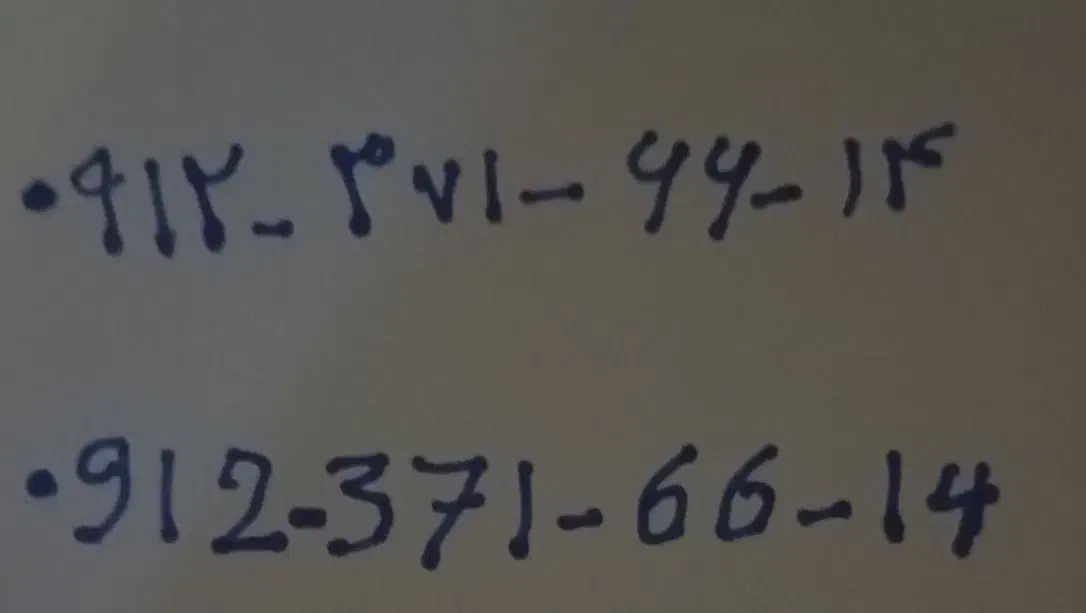 ۰۹۱۲-۳۷۱-۶۶-۱۴
·912-371-66-14